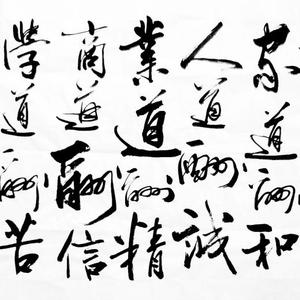 家道酬和
人道酬誠
業道酬精
商道酬信
學道酬苦